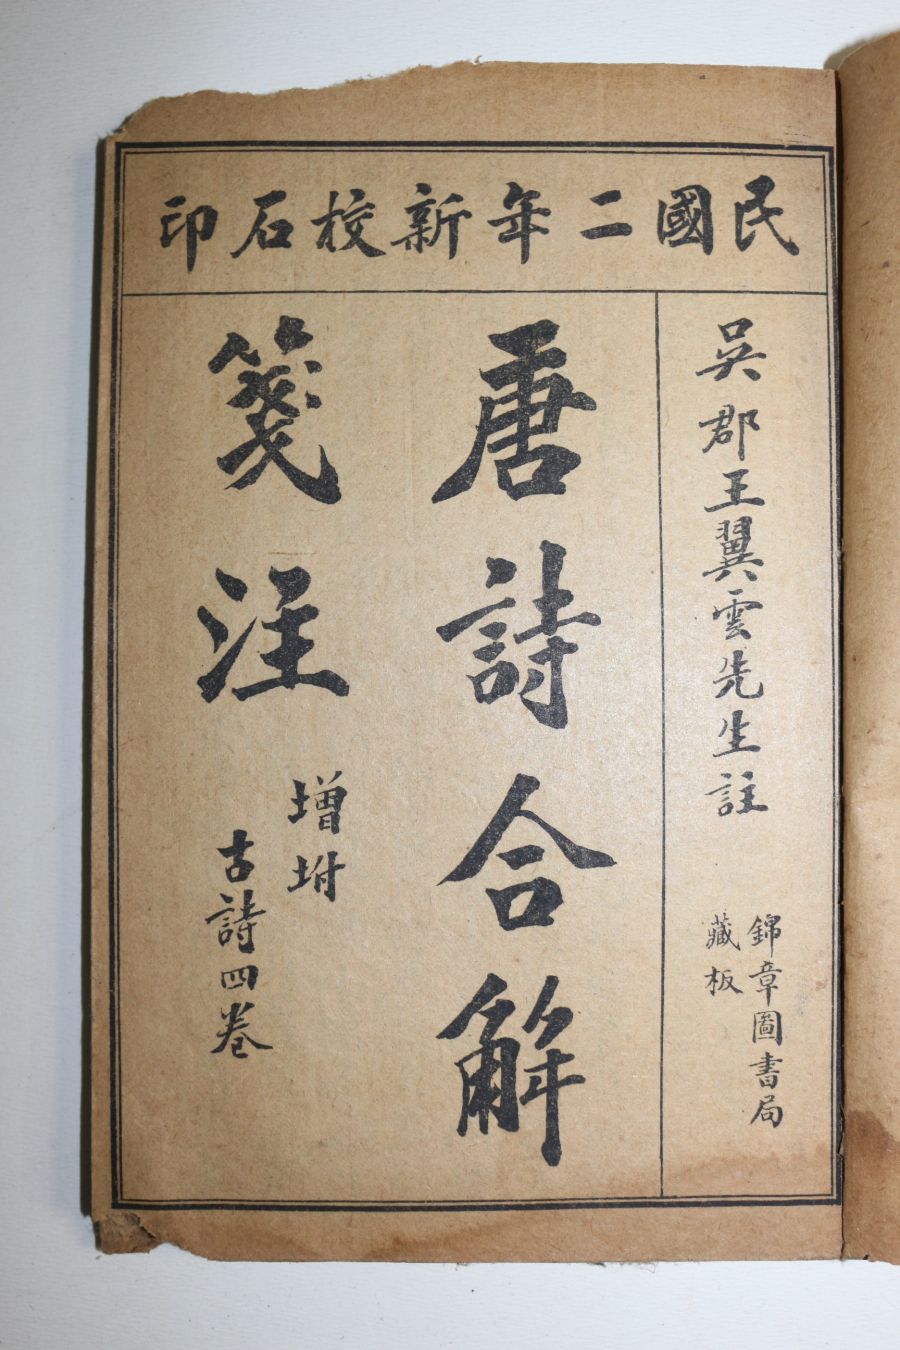 民國二年新校石印
吳郡王翼雲先生註
錦章圖書局
藏板
唐詩合解
箋注
增坿
古詩四卷